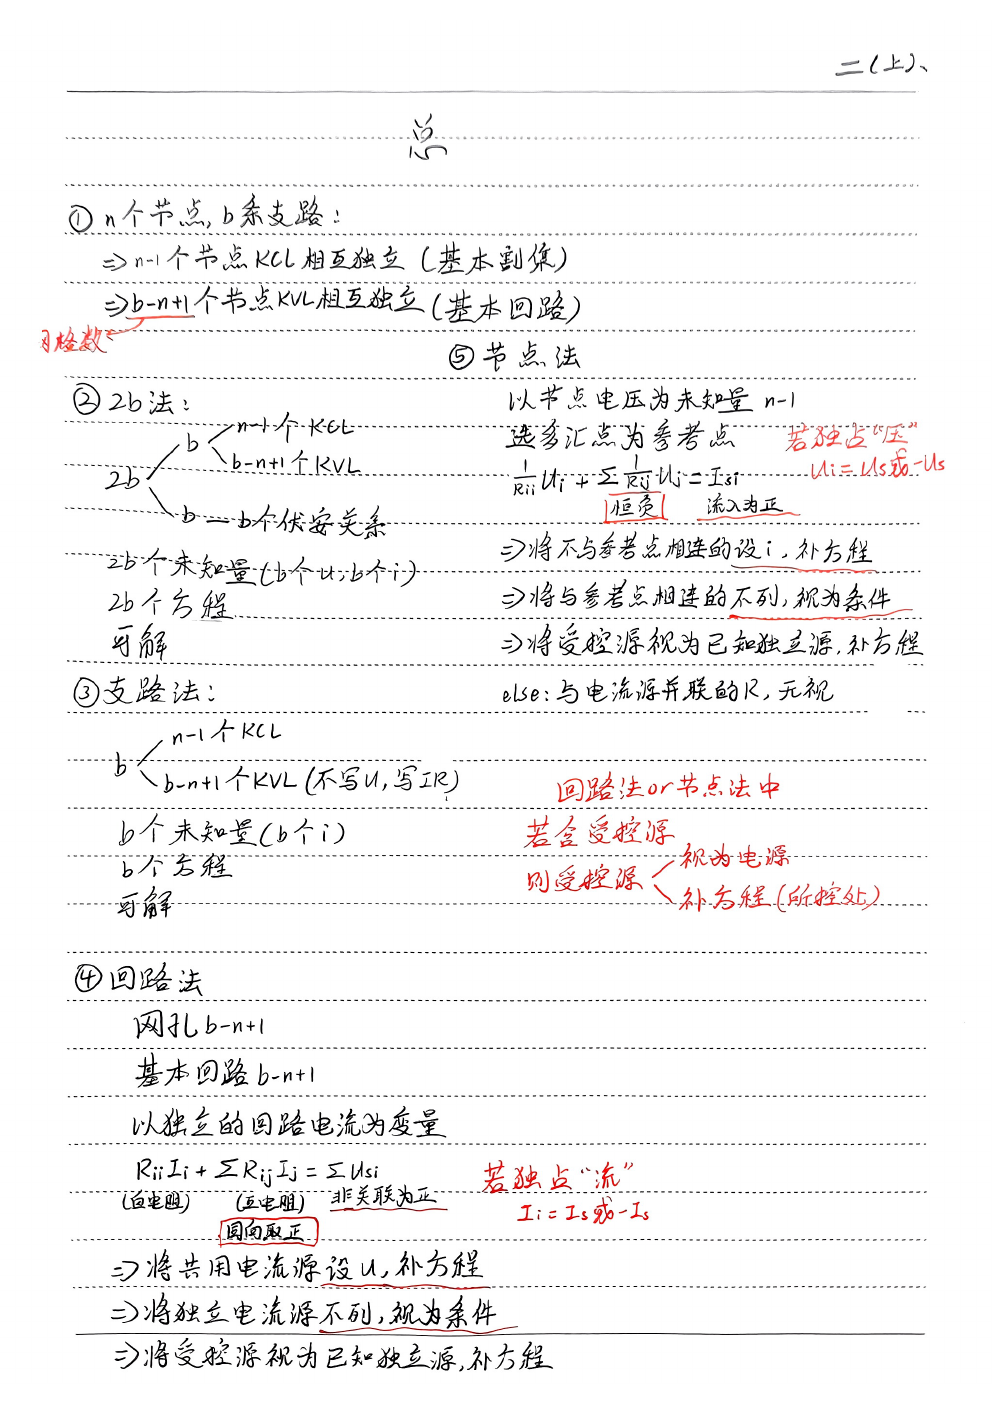 二(上)、
总
① n个节点,b条支路:
⇒ n-1个节点KCL相互独立 (基本割集)
⇒ b-n+1个节点KVL相互独立 (基本回路)
网格数
② 2b法:
2b
b
n-1个KCL
b-n+1个KVL
b — b个伏安关系
2b个未知量(b个u,b个i)
2b个方程
可解
③ 支路法:
b
n-1个KCL
b-n+1个KVL (不写U,写IR)
b个未知量(b个i)
b个方程
可解
④ 回路法
网孔 b-n+1
基本回路 b-n+1
以独立的回路电流为变量
RiiIi + ΣRijIj = ΣUsi
(自电阻) (互电阻) 非关联为正
同向取正
若独占“流”
Ii = Is或-Is
⇒ 将共用电流源设U,补方程
⇒ 将独立电流源不列,视为条件
⇒ 将受控源视为已知独立源,补方程
⑤ 节点法
以节点电压为未知量 n-1
选多汇点为参考点
若独占“压”
Ui = Us或-Us
1/Rii Ui + Σ 1/Rij Uj = Isi
恒负 流入为正
⇒ 将不与参考点相连的设i,补方程
⇒ 将与参考点相连的不列,视为条件
⇒ 将受控源视为已知独立源,补方程
else: 与电流源并联的R,无视
回路法or节点法中
若含受控源
则受控源
视为电源
补方程(所控处)